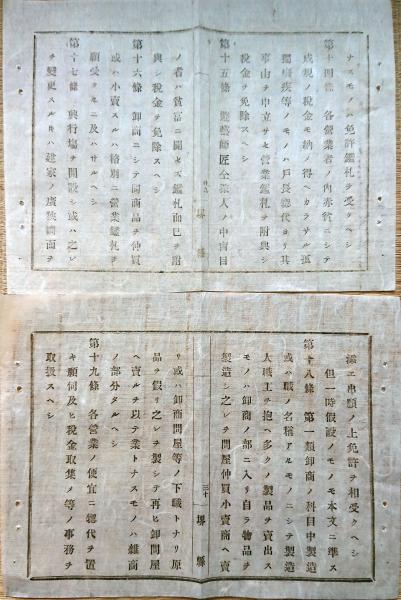 ナスモノハ免許鑑札ヲ受クヘシ
第十四條 各營業者ノ內赤貧ニシテ
成規ノ稅金モ納ノ得ヘカラサル孤
獨癈疾等ノモノハ戶長總代ヨリ其
事由ヲ申立サセ營業鑑札ヲ附與シ
稅金ヲ免除スヘシ
第十五條 遊藝師匠仝業人ノ中盲目
廿九
堺縣
ノ者ハ貧富ニ關セス鑑札而已ヲ附
與シ稅金ヲ免除スヘシ
第十六條 卸商ニシテ同商品ヲ仲買
或ハ小賣スルハ格別ニ營業鑑札ヲ
願受クルニ及ハサルヘシ
第十七條 興行場ヲ開設シ或ハ之レ
ヲ變更スルトハ建家ノ廣狹圖面ヲ
添エ出願ノ上免許ヲ相受クヘシ
但一時假設ノモノモ本文ニ準ス
第十八條 第一類卸商ノ科目中製造
或ハ職ノ名稱アルモノニシテ製造
人職工ヲ抱ヘ多クノ製品ヲ賣出ス
モノハ卸商ノ部ニ入リ自ラ物品ヲ
製造シ之レヲ問屋仲買小賣商ヘ賣
三十
堺縣
リ或ハ卸商問屋等ノ下職トナリ原
品ヲ假リ之レヲ製シテ再ヒ卸問屋
ヘ賣ルヲ以テ業トナスモノハ雜商
ノ部分タルヘシ
第十九條 各營業ノ便宜ニ總代ヲ置
キ願伺及ヒ稅金取集メ等ノ事務ヲ
取扱スヘシ